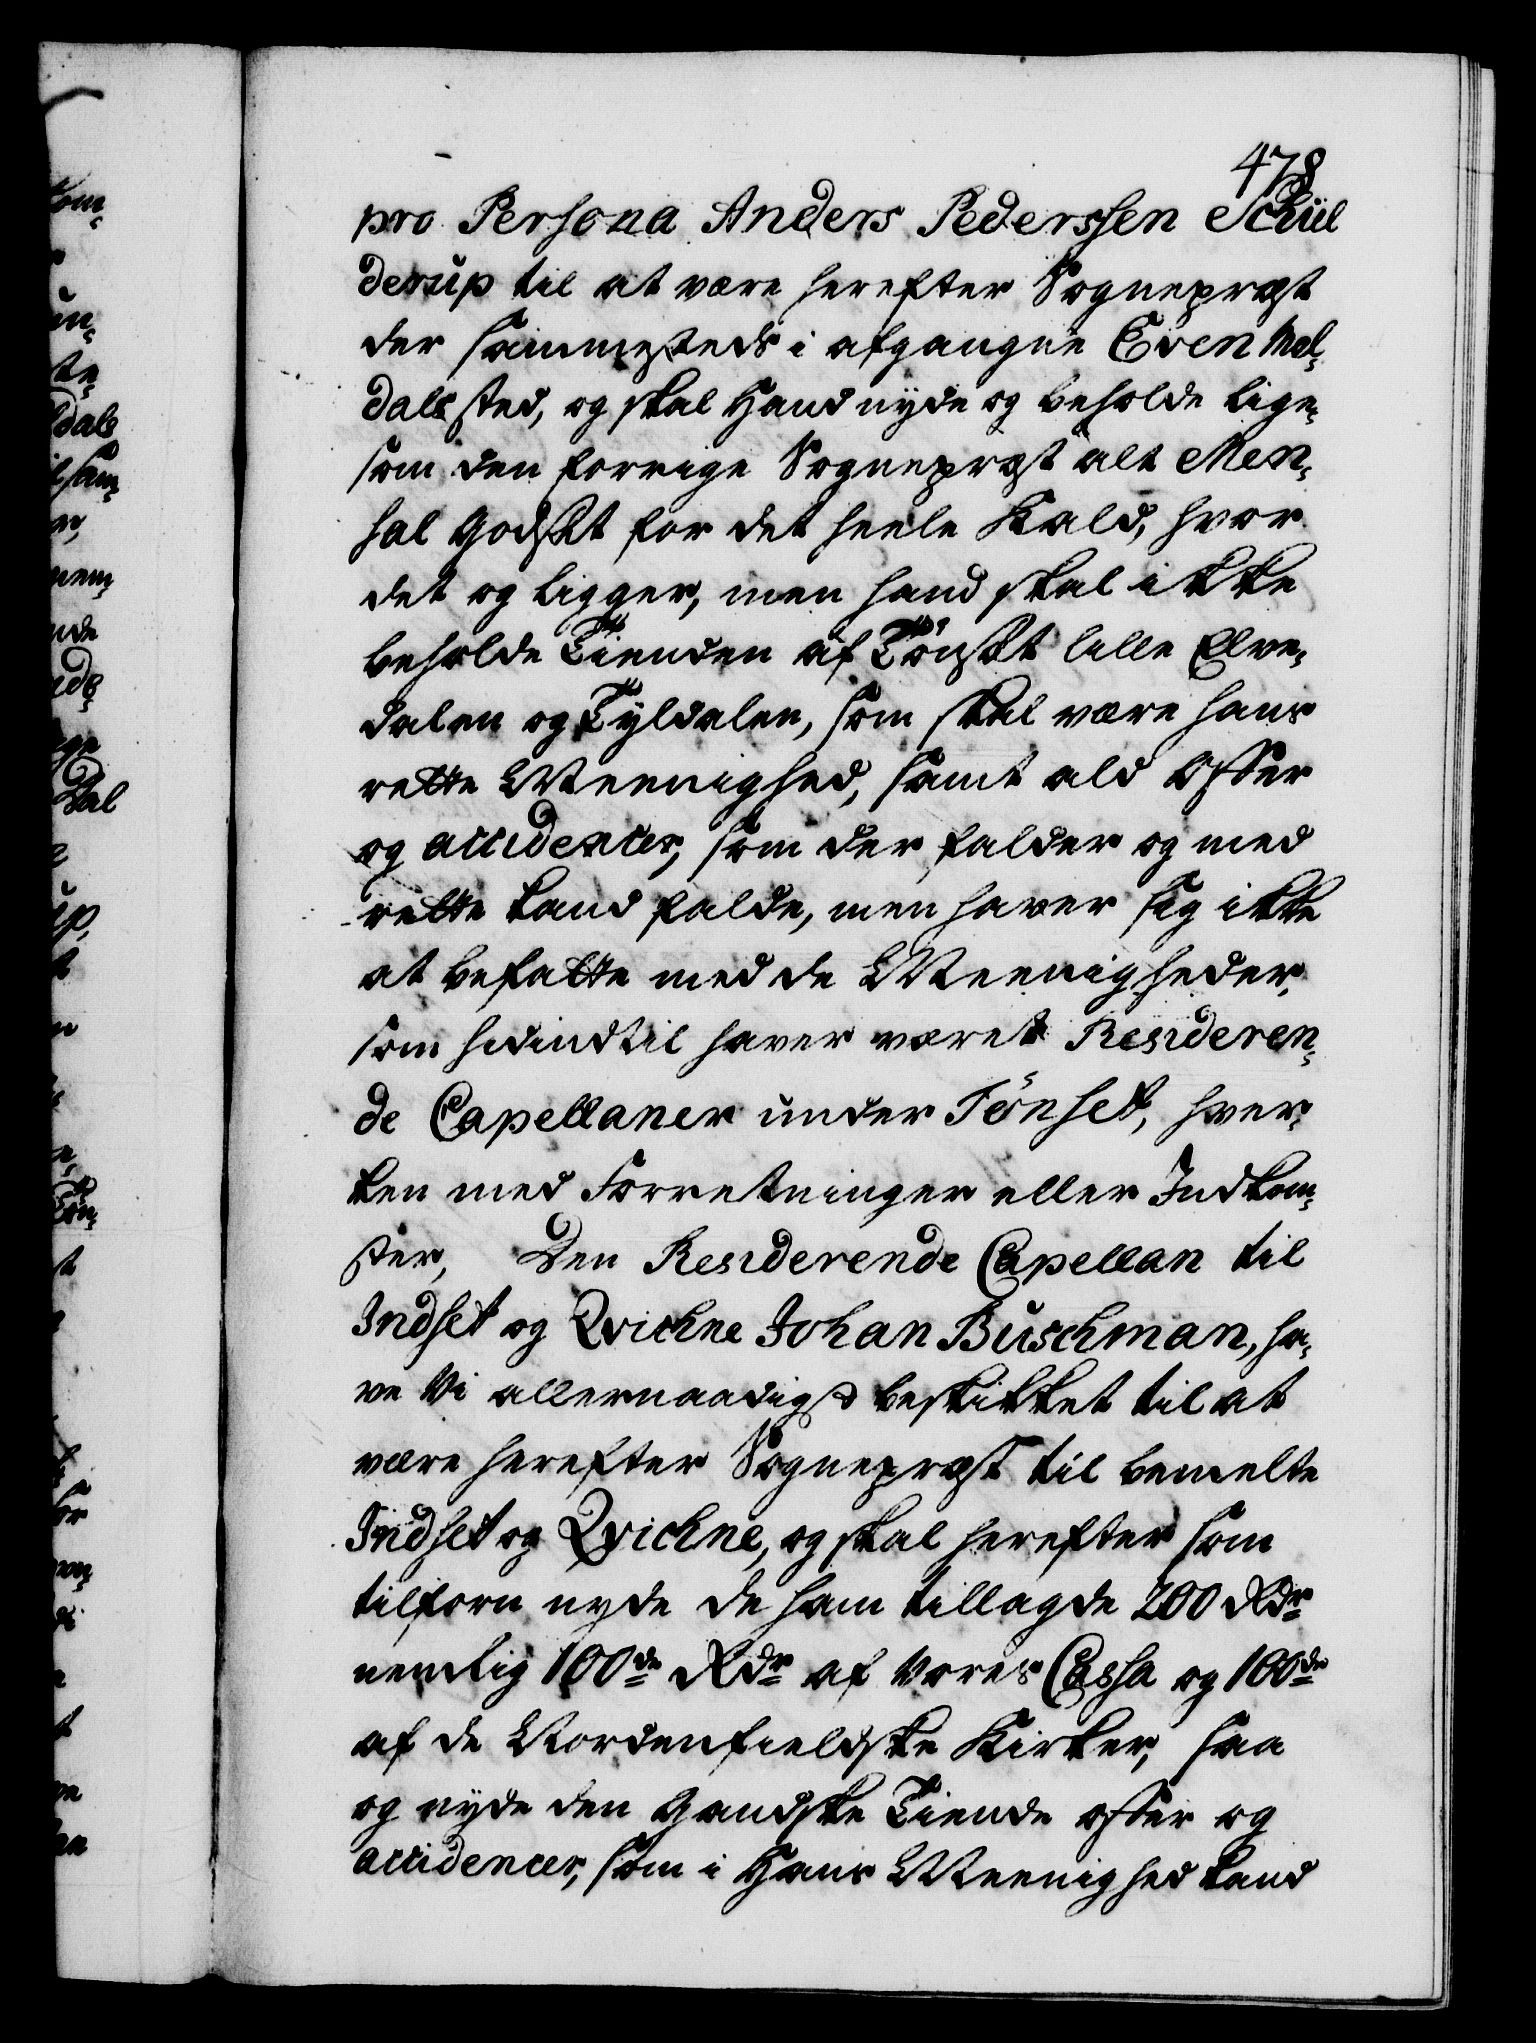 478
pro Persona Anders Pederssen Schiel
derup til at være herefter Sognepræst
der sammesteds i afgangne Even Mel,
dals sted, og skal Hand nyde og beholde lige,
som den forrige Sognepræst alt Men,
sal Godset for det heele Kald, hvor
det og ligger, men hand skal ikke
beholde Tienden af Tönset lille Elve,
dalen og Tyldalen, som skal være hans
rette Meenighed, samt ald Offer
og accidencer, som der falder og med
rette kand falde, men haver sig ikke
at befatte med de Meenigheder,
som hidindtil haver været Resideren,
de Capellaner under Tönset, hver,
ken med Forretninger eller Indkom,
ster, Den Residerende Capellan til
Indset og Qvichne Johan Buschman, ha,
ve Vi allernaadigst beskikket til at
være herefter Sognepræst til bemelte
Indset og Qvichne, og skal herefter som
tilforn nyde de ham tillagde 200 Rdr
nemlig 100de Rdr af Vores Cassa og 100de
af de Nordenfieldske Kirker, saa
og nyde den Gandske Tiende offer og
accidencer, som i Hans Meenighed kand